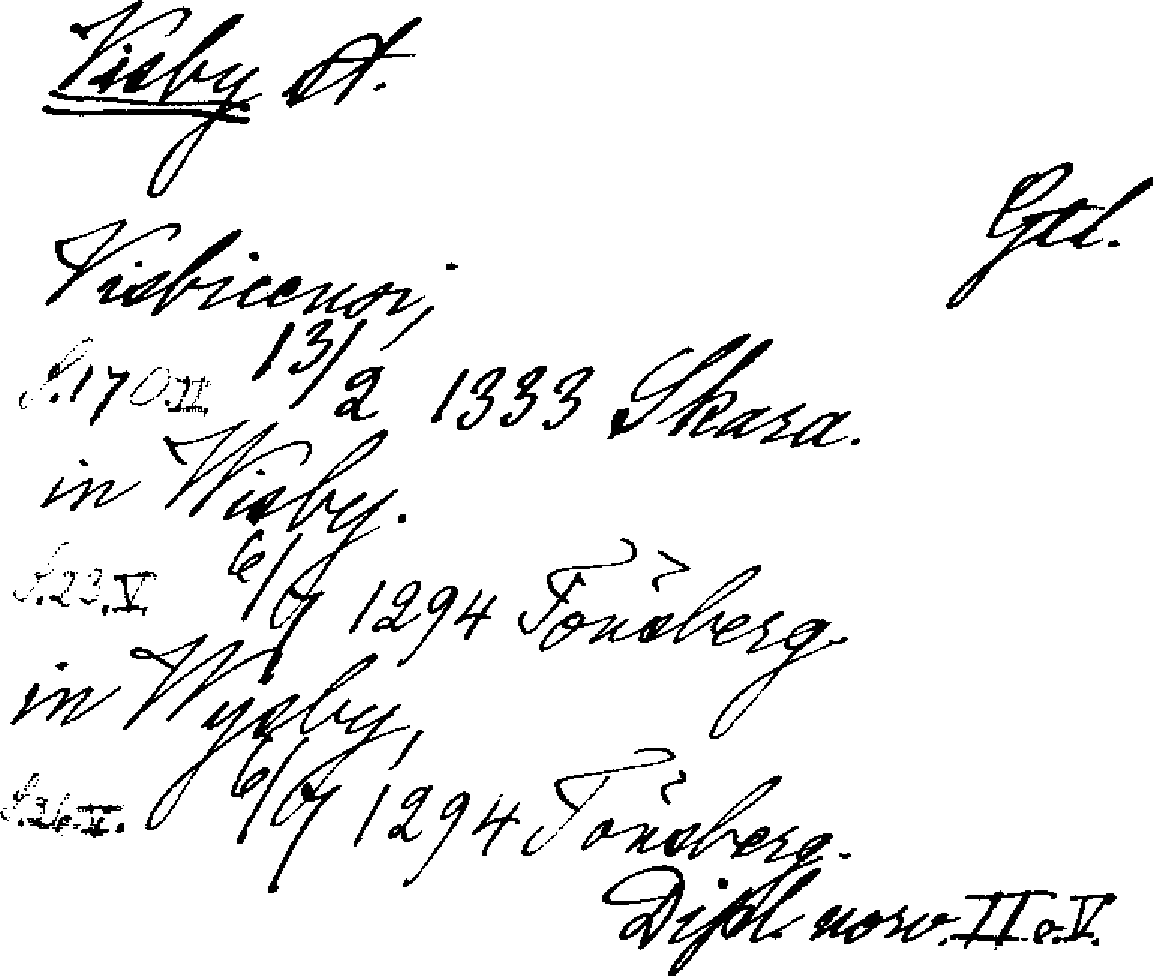 Visby St.
Gtl.
Visbicensi,
S. 170. II. 13/2 1333 Skara.
in Wisby.
S. 23. V. 6/7 1294 Tönsberg
in Wysby,
S. 26. V. 6/7 1294 Tönsberg.
Dipl. norv. II o. V.